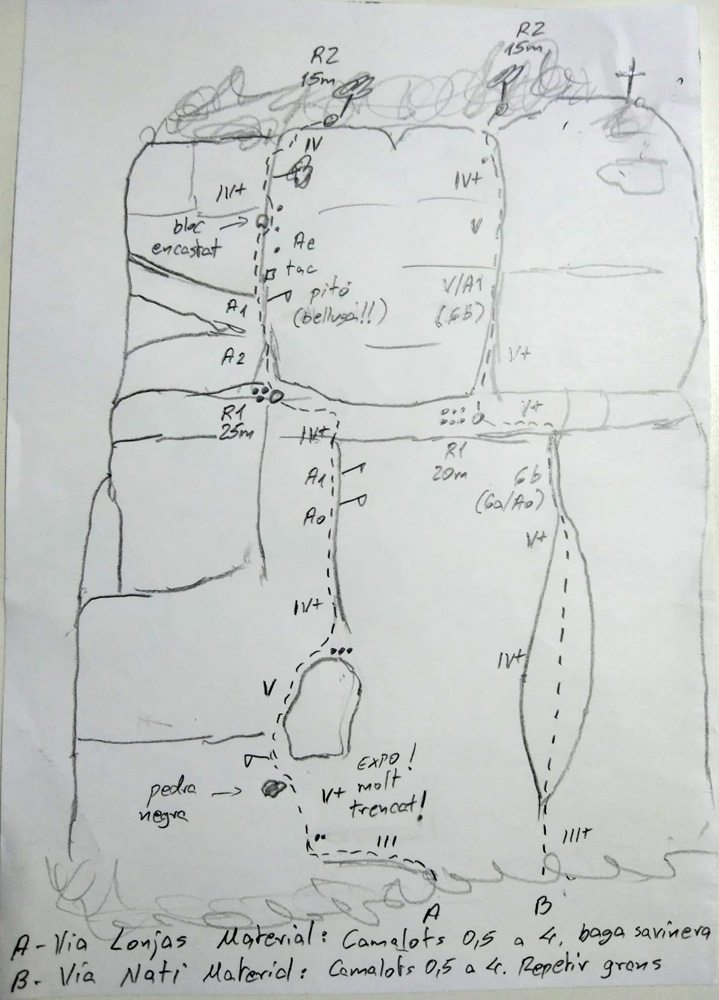 R2
15m
R2
15m
IV
IV+
bloc
encastat
Ae
tac
pitó
(belluga!!)
A1
A2
IV+
V
V/A1
(6b)
V+
V+
R1
25m
IV+
A1
A0
R1
20m
6b
(6a/A0)
V+
IV+
IV+
V
EXPO!
V+ molt
trencat!
pedra
negra
III
III+
A
B
A - Via Lonjas Material: Camalots 0,5 a 4, baga savinera
B - Via Nati Material: Camalots 0,5 a 4. Repetir grans